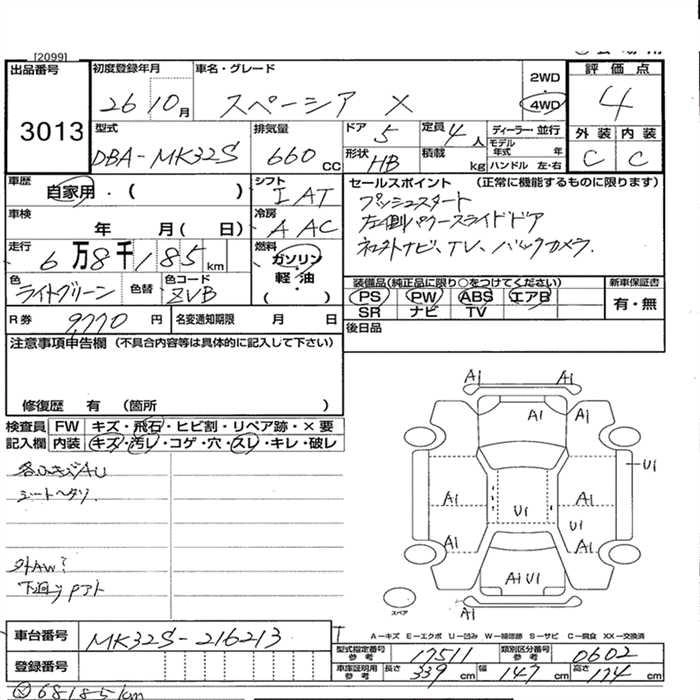 [2099]
出品番号 初度登録年月 車名・グレード 評価点
3013 26 10月 スペーシア X 2WD 4WD 4
型式 排気量 ドア 定員 ディーラー・並行 外装 内装
DBA-MK32S 660 CC 5 4人 モデル年式 年 C C
形状 HB 積載 kg ハンドル 左・右
車歴 自家用・( ) シフト IAT セールスポイント (正常に機能するものに限ります)
車検 年 月( 日) 冷房 AAC
プッシュスタート
左側パワースライドドア
社外ナビ、TV、バックカメラ.
走行 6万8千185km 燃料 ガソリン 軽・油 ( )
色 ライトグリーン 色替 色コード ZVB
装備品(純正品に限り○をつけてください) 新車保証書
PS PW ABS エアB 有・無
SR ナビ TV
R券 9770円 名変通知期限 月 日 後日品
注意事項申告欄 (不具合内容等は具体的に記入して下さい)
修復歴 有 (箇所 )
検査員 FW キズ・飛石・ヒビ割・リペア跡・×要
記入欄 内装 キズ・汚レ・コゲ・穴・スレ・キレ・破レ
シートヘタリ
外AW?
A1 A1
A1 A1
U1
A1 U1 A1
U1
A1 A1
A1U1
A1
スペア
A-キズ E-エクボ U-凹み W-補修跡 S-サビ C-腐食 XX-交換済
車台番号 MK32S-216213
型式指定番号 参考 17511 類別区分番号 参考 0602
登録番号
車庫証明用 参考 長さ 339cm 幅 147cm 高さ 174cm
68185km